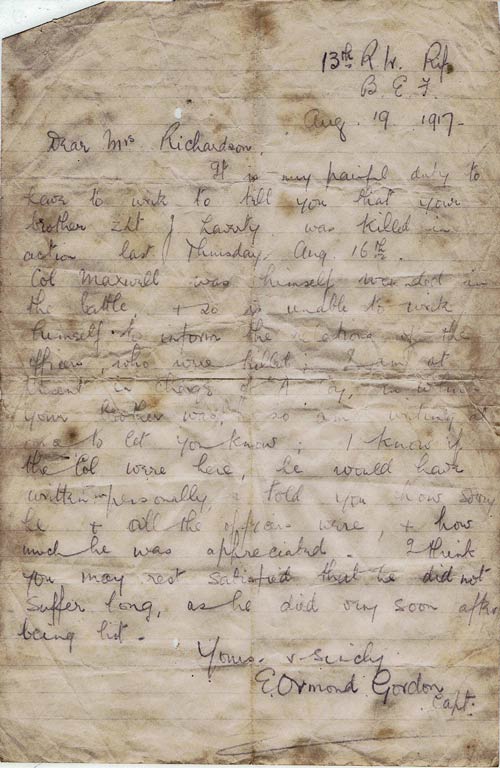 13th R Ir. Rif
B E F.
Aug. 19 1917-
Dear Mrs Richardson,
It is my painful duty to
have to write to tell you that your
brother 2Lt J Lavety was killed in
action last Thursday, Aug. 16th.
Col Maxwell was himself wounded in
the battle, + so is unable to write
himself to inform the relations of the
officers, who were killed; I am at
present in charge of "A" Coy, in which
your brother was, + so am writing
to let you know; I know if
the Col were here, he would have
written personally, + told you how sorry
he + all the officers were, + how
much he was appreciated. I think
you may rest satisfied that he did not
suffer long, as he died very soon after
being hit.
Yours. v sincly.
E. Ormond Gordon
Capt.